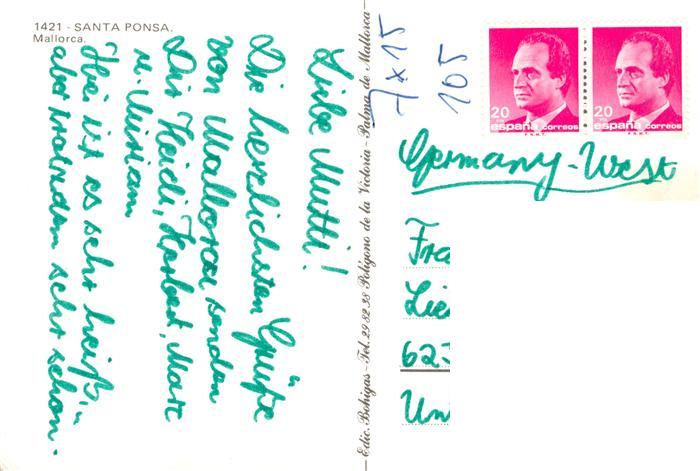 1421 - SANTA PONSA.
Mallorca.
Liebe Mutti!
Die herzlichsten Grüße
von Mallorca senden
Dir Heidi, Herbert, Marc
u. Miriam
Hier ist es sehr heiß,
aber trotzdem sehr schön.
Edic. Bohigas - Tel. 29 82 38 Polígono de la Victoria - Palma de Mallorca
7 x 15
105
20
españa correos
F.N.M.T.
20
españa correos
F.N.M.T.
Germany-West
Fra
Lie
62
Un